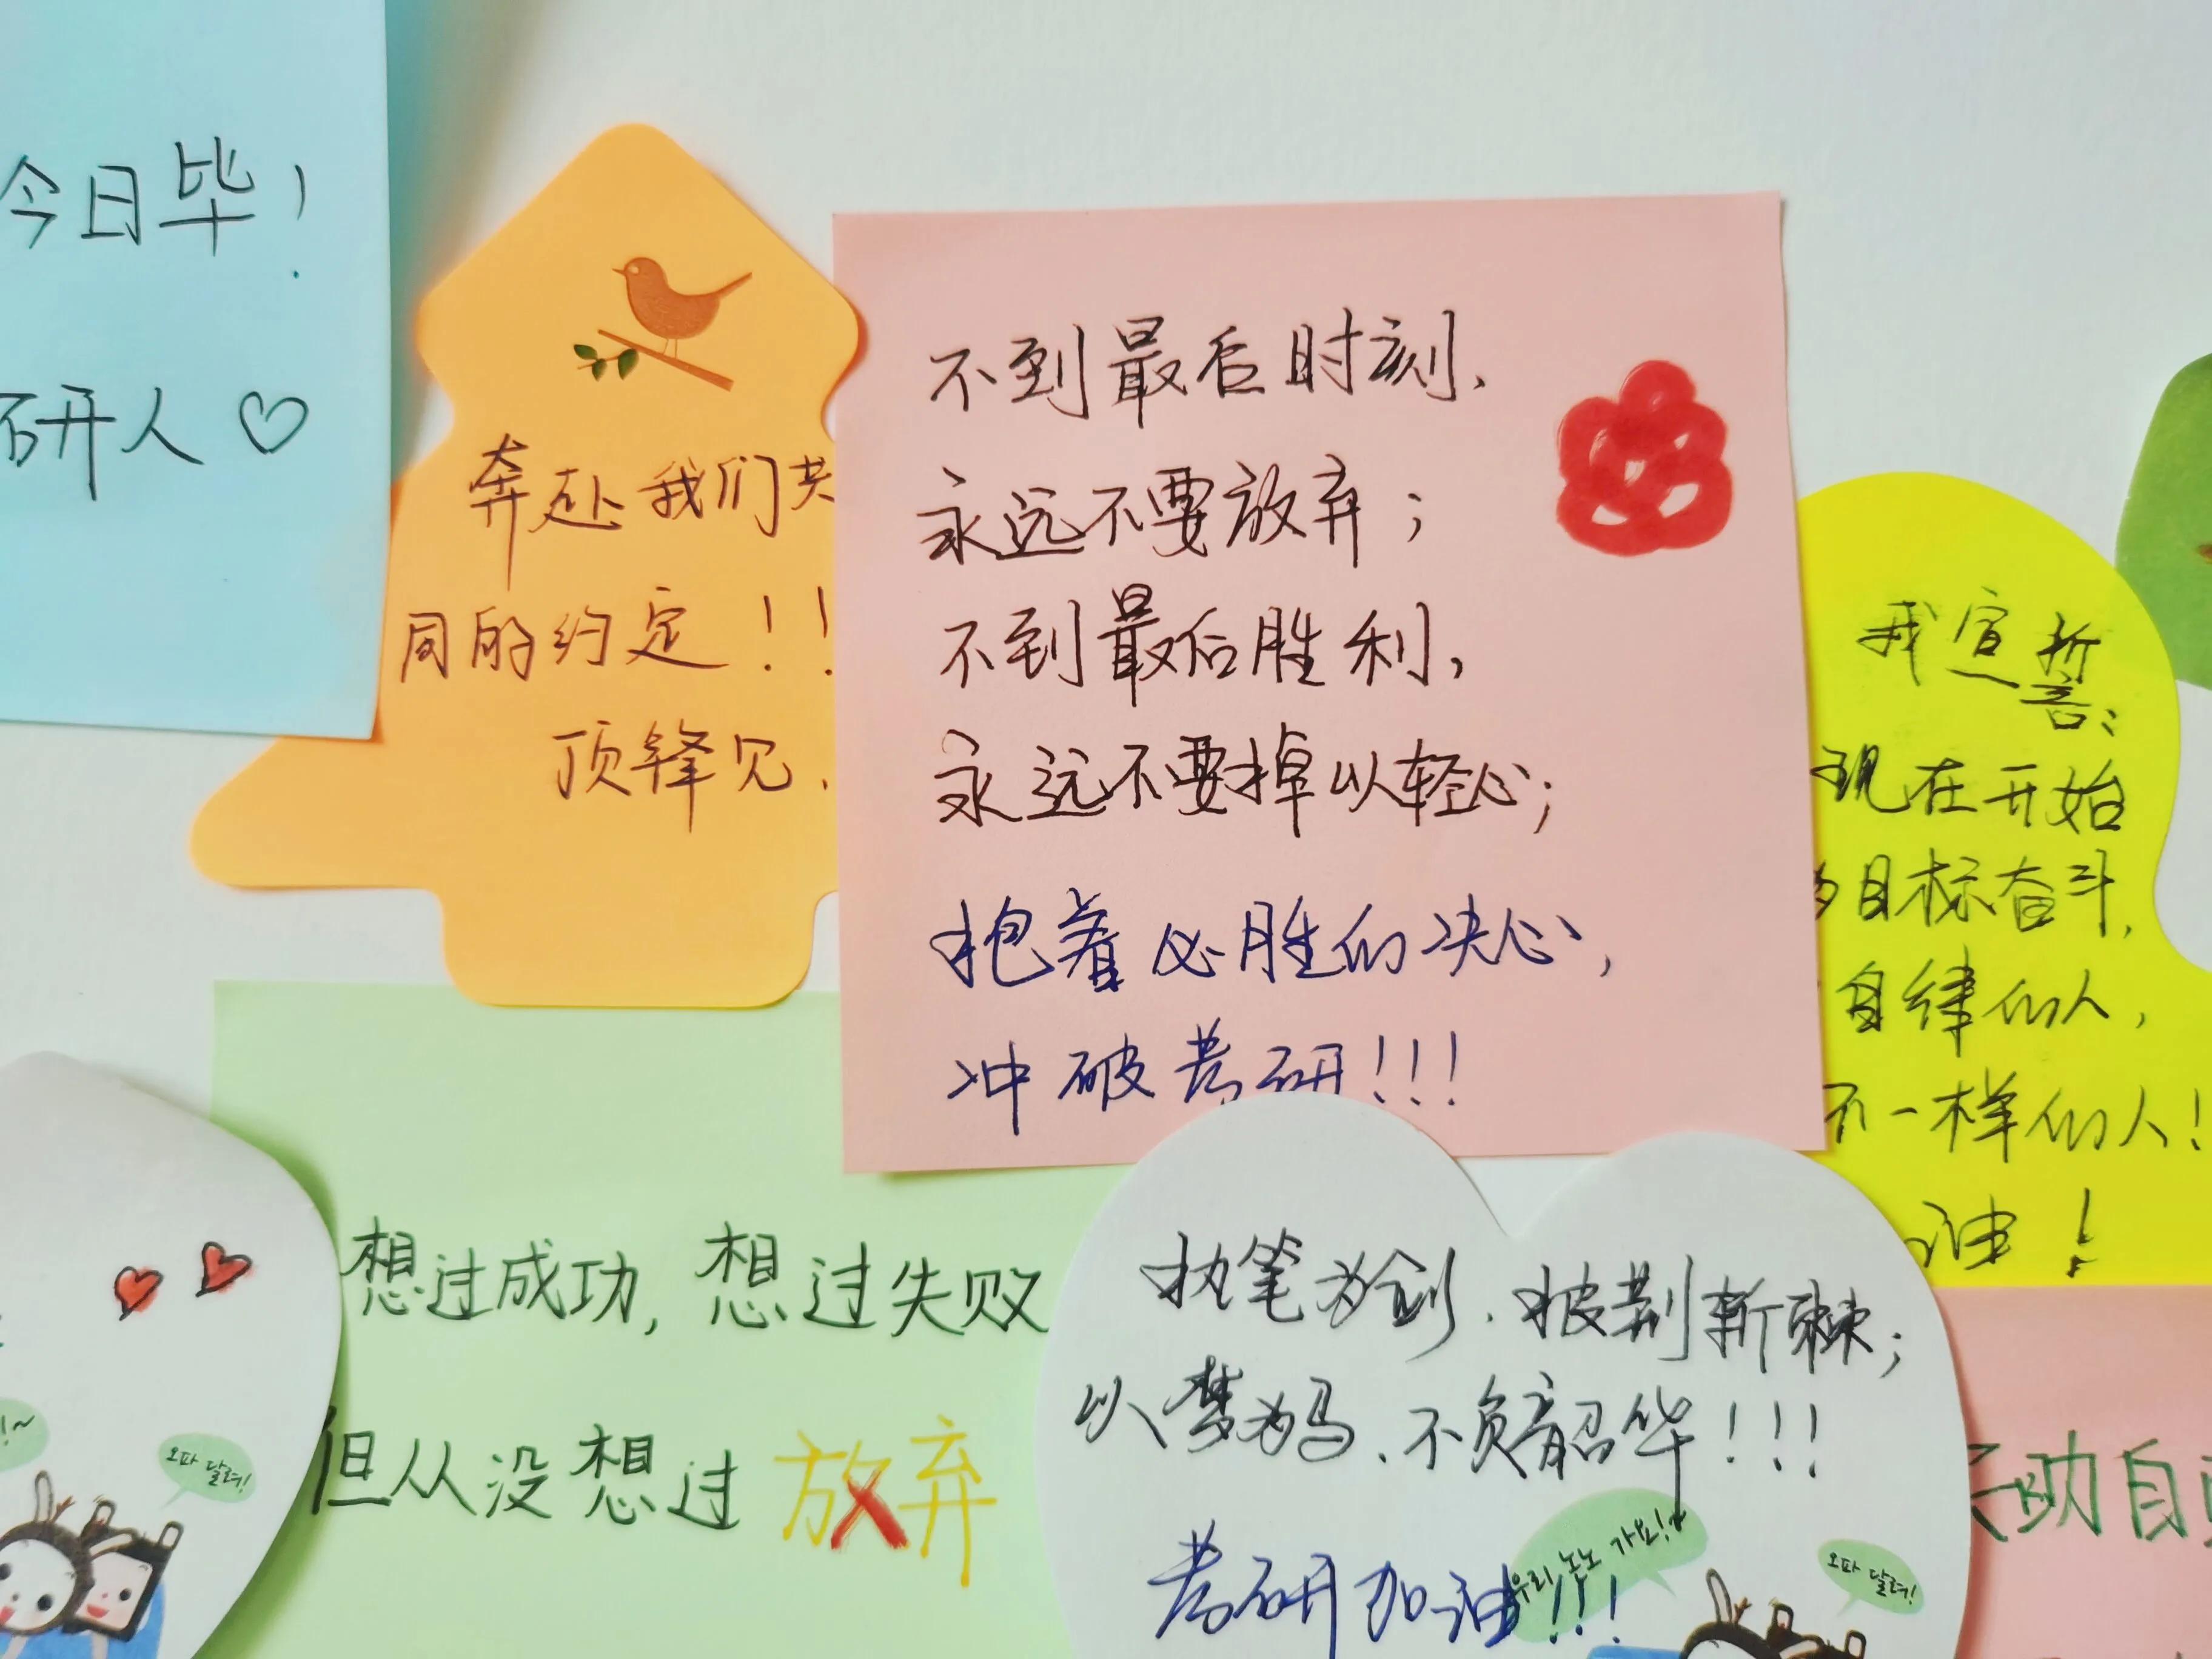 今日毕!
研人♡
奔赴我们共
同的约定!!
顶锋见.
不到最后时刻,
永远不要放弃;
不到最后胜利,
永远不要掉以轻心;
抱着必胜的决心,
冲破考研!!!
我宣誓:
现在开始
为目标奋斗,
自律的人,
不一样的人!
油!
想过成功,想过失败
但从没想过放弃
执笔为剑.披荆斩棘;
以梦为马.不负韶华!!!
考研加油!!!
우리 노노 가요!
오파 달려!
오파 달려!
天助自